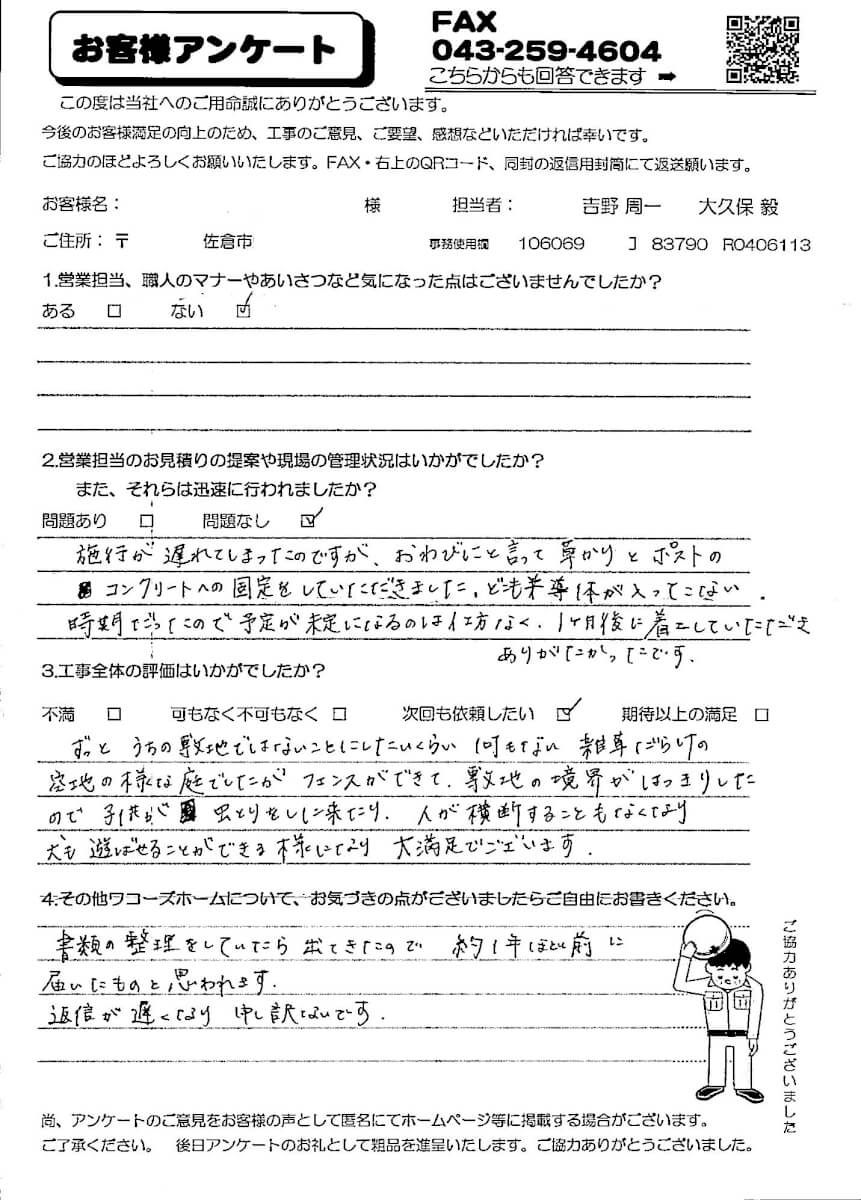 お客様アンケート
FAX
043-259-4604
こちらからも回答できます ➡
この度は当社へのご用命誠にありがとうございます。
今後のお客様満足の向上のため、工事のご意見、ご要望、感想などいただければ幸いです。
ご協力のほどよろしくお願いいたします。FAX・右上のQRコード、同封の返信用封筒にて返送願います。
お客様名： 様 担当者： 吉野 周一 大久保 毅
ご住所：〒 佐倉市 事務使用欄 106069 J 83790 R0406113
1.営業担当、職人のマナーやあいさつなど気になった点はございませんでしたか？
ある □ ない ☑
2.営業担当のお見積りの提案や現場の管理状況はいかがでしたか？
また、それらは迅速に行われましたか？
問題あり □ 問題なし ☑
施行が遅れてしまったのですが、おわびにと言って草かりとポストの
コンクリートへの固定をしていただきました。ども半導体が入ってこない
時期だったので予定が未定になるのは仕方なく、1ヶ月後に着工していただき
ありがたかったです。
3.工事全体の評価はいかがでしたか？
不満 □ 可もなく不可もなく □ 次回も依頼したい ☑ 期待以上の満足 □
ずっと うちの敷地ではないことにしたいくらい 何もない 雑草だらけの
空地の様な庭でしたが フェンスができて、敷地の境界がはっきりした
ので 子供が 虫とりをしに来たり、人が横断することもなくなり
犬も遊ばせることができる様になり 大満足でございます。
4.その他ワコーズホームについて、お気づきの点がございましたらご自由にお書きください。
書類の整理をしていたら 出てきたので 約1年ほど前に
届いたものと思われます。
返信が遅くなり 申し訳ないです。
ご協力ありがとうございました
尚、アンケートのご意見をお客様の声として匿名にてホームページ等に掲載する場合がございます。
ご了承ください。 後日アンケートのお礼として粗品を進呈いたします。ご協力ありがとうございました。